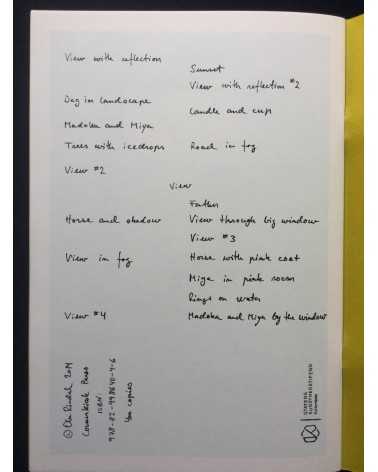 View with reflection
Sunset
View with reflection #2
Dog in landscape
Candle and cup
Madoka and Miya
Trees with icedrops
Road in fog
View #2
View
Father
Horse and shadow
View through big window
View #3
View in fog
Horse with pink coat
Miya in pink room
Rings on water
View #4
Madoka and Miya by the window
© Ola Rindal 2014
Press
ISBN
copies